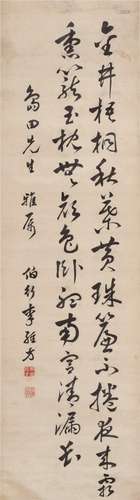 金井梧桐秋葉黃珠簾不捲夜來霜
熏籠玉枕無顏色臥聽南宮清漏長
島田先生 雅屬
伯行李經方